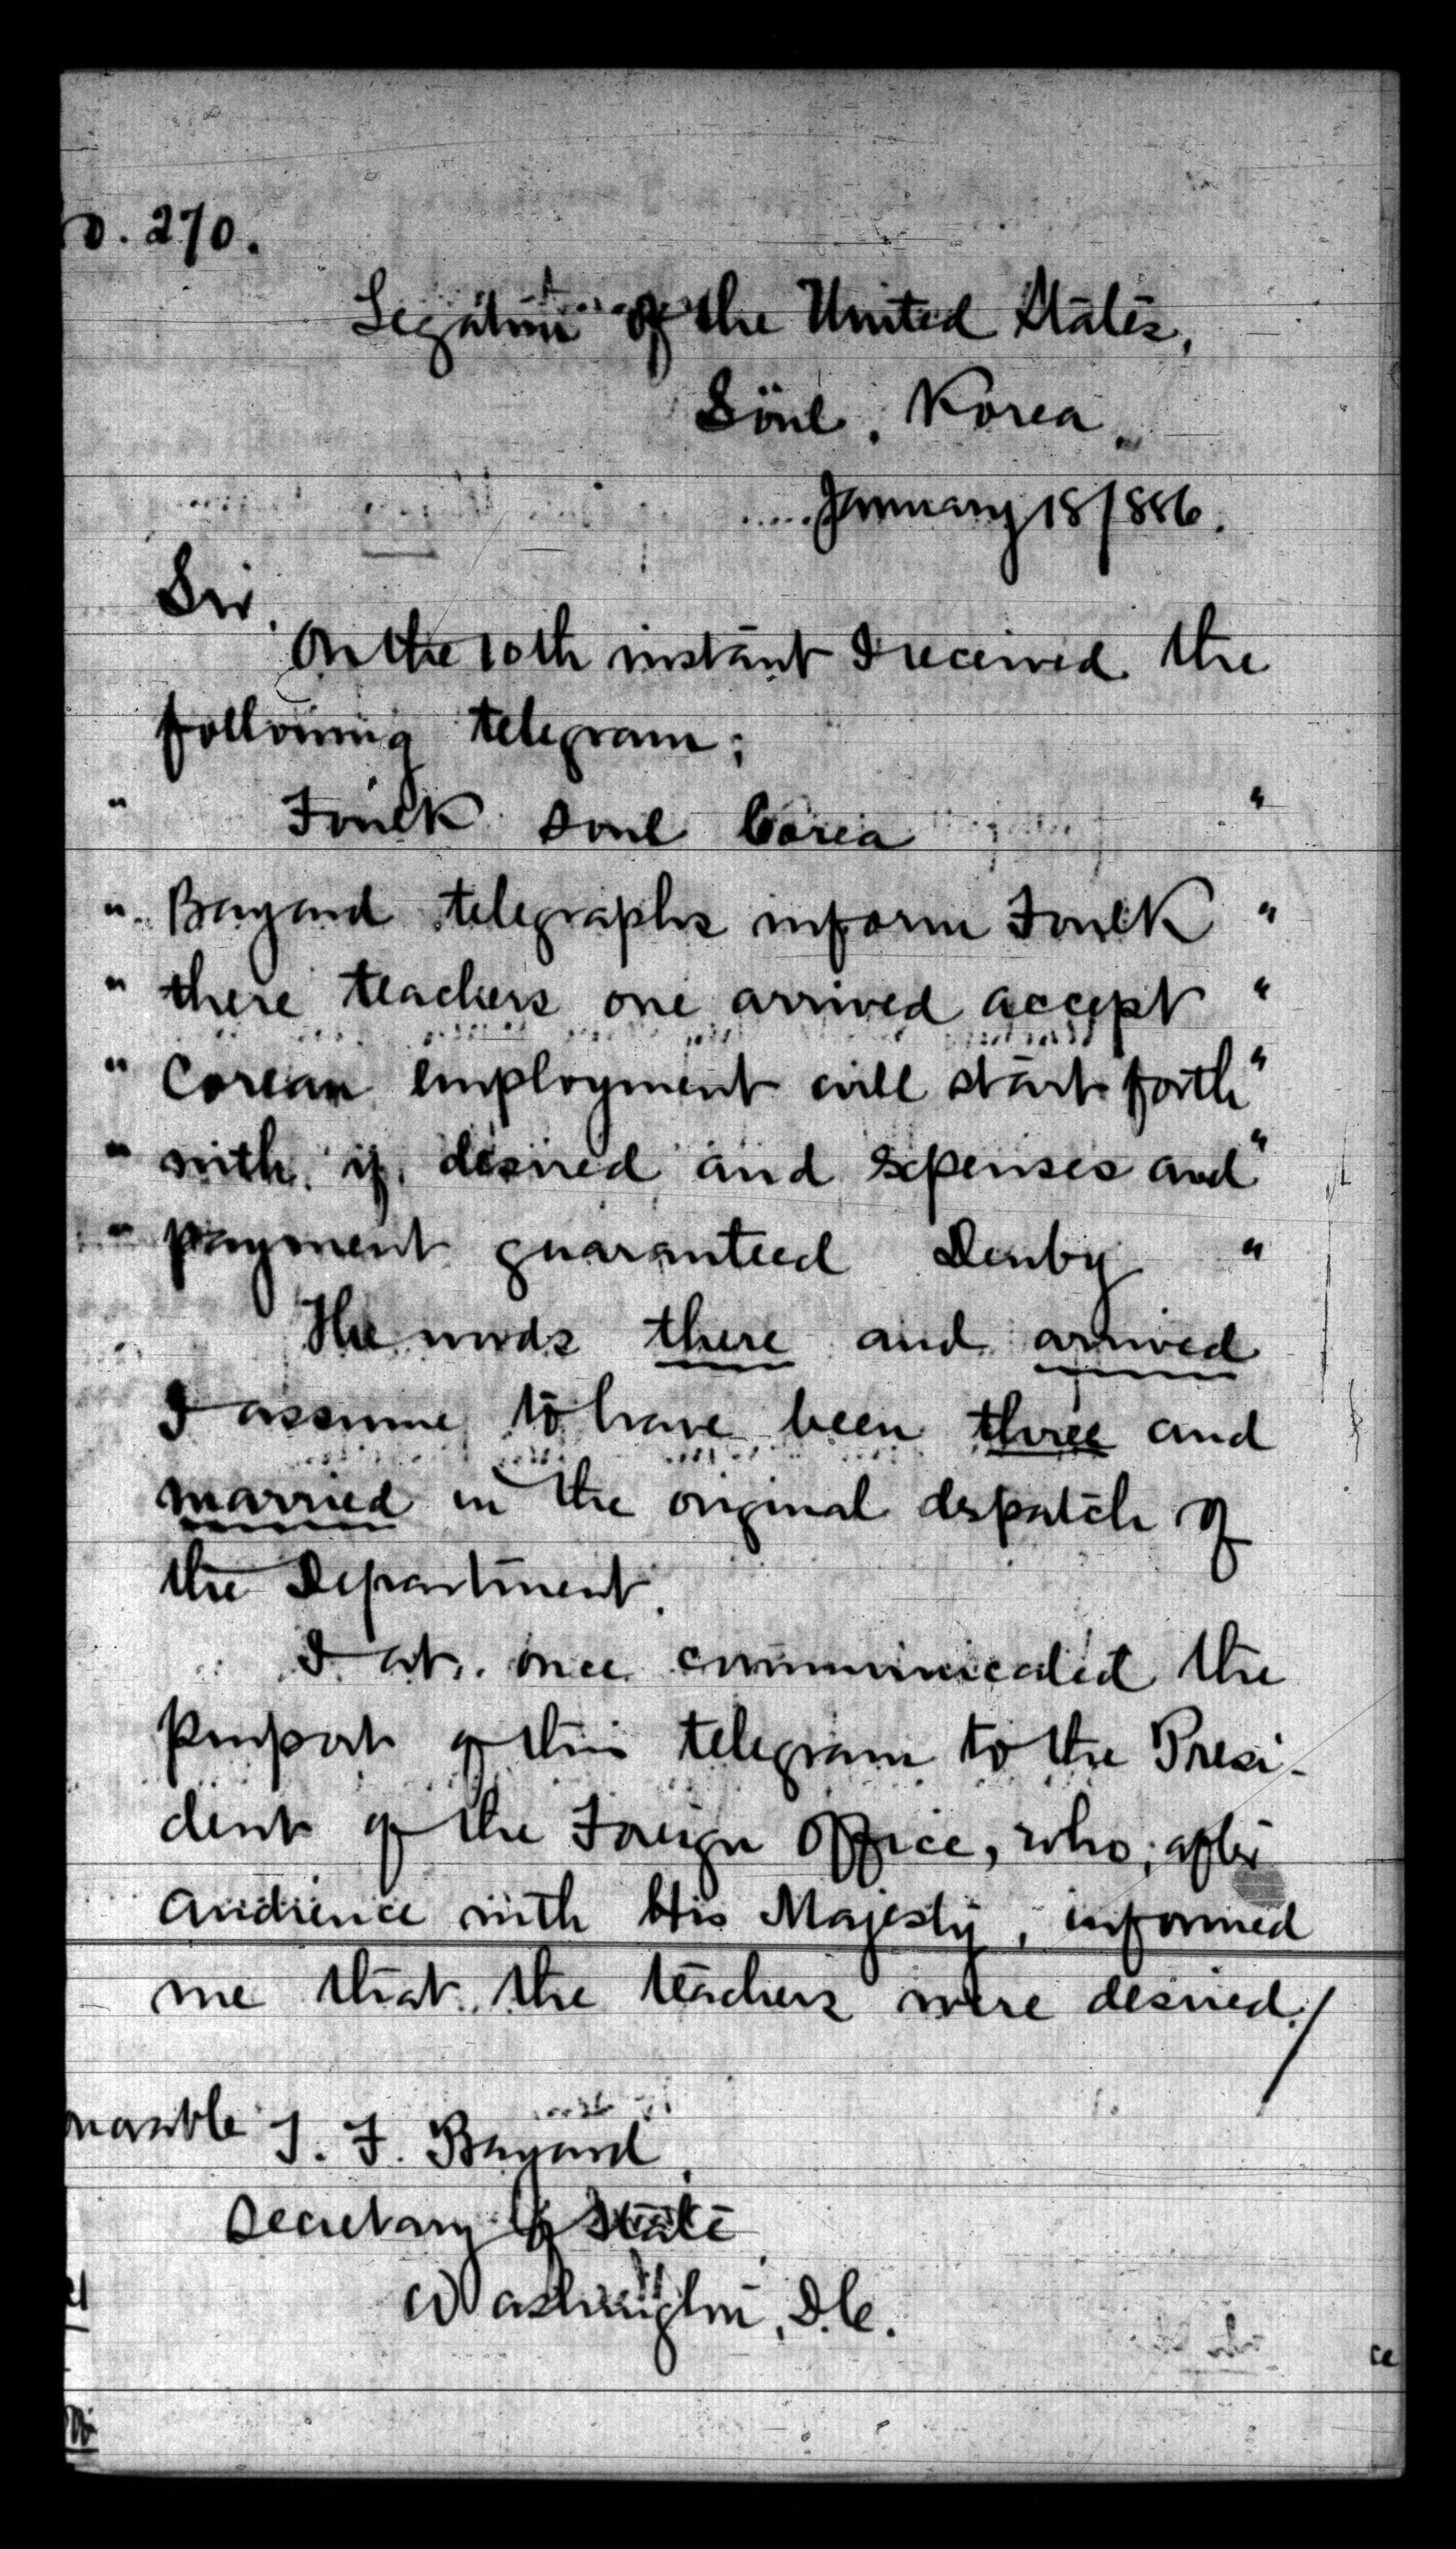 o. 270.
Legation of the United States,
Söul, Korea,
January 18 1886.
Sir,
On the 10th instant I received the
following telegram;
" Foulk Soul Corea "
" Bayard telegraphs inform Foulk "
" there teachers one arrived accept "
" Corean employment will start forth "
" with if desired and expenses and "
" payment guaranteed Denby "
The words there and arrived
I assume to have been three and
married in the original dispatch of
the Department.
I at once communicated the
purport of this telegram to the Presi-
dent of the Foreign Office, who, after
audience with His Majesty, informed
me that the teachers were desired./
norable T. F. Bayard,
Secretary of State
Washington, D.C.